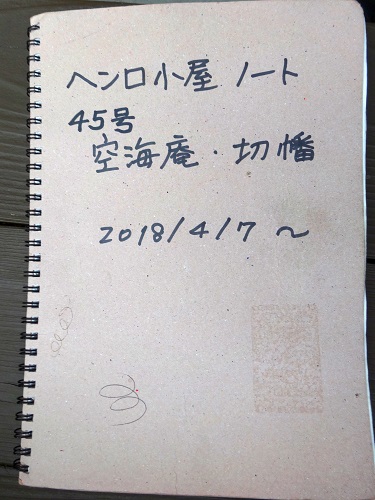 ヘンロ小屋 ノート
45号
空海庵・切幡
2018/4/7 〜